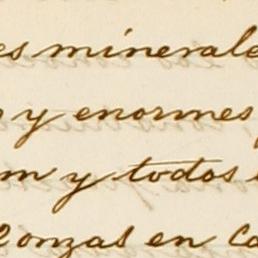 es minerale
y enormes
m y todos
onzas en Co